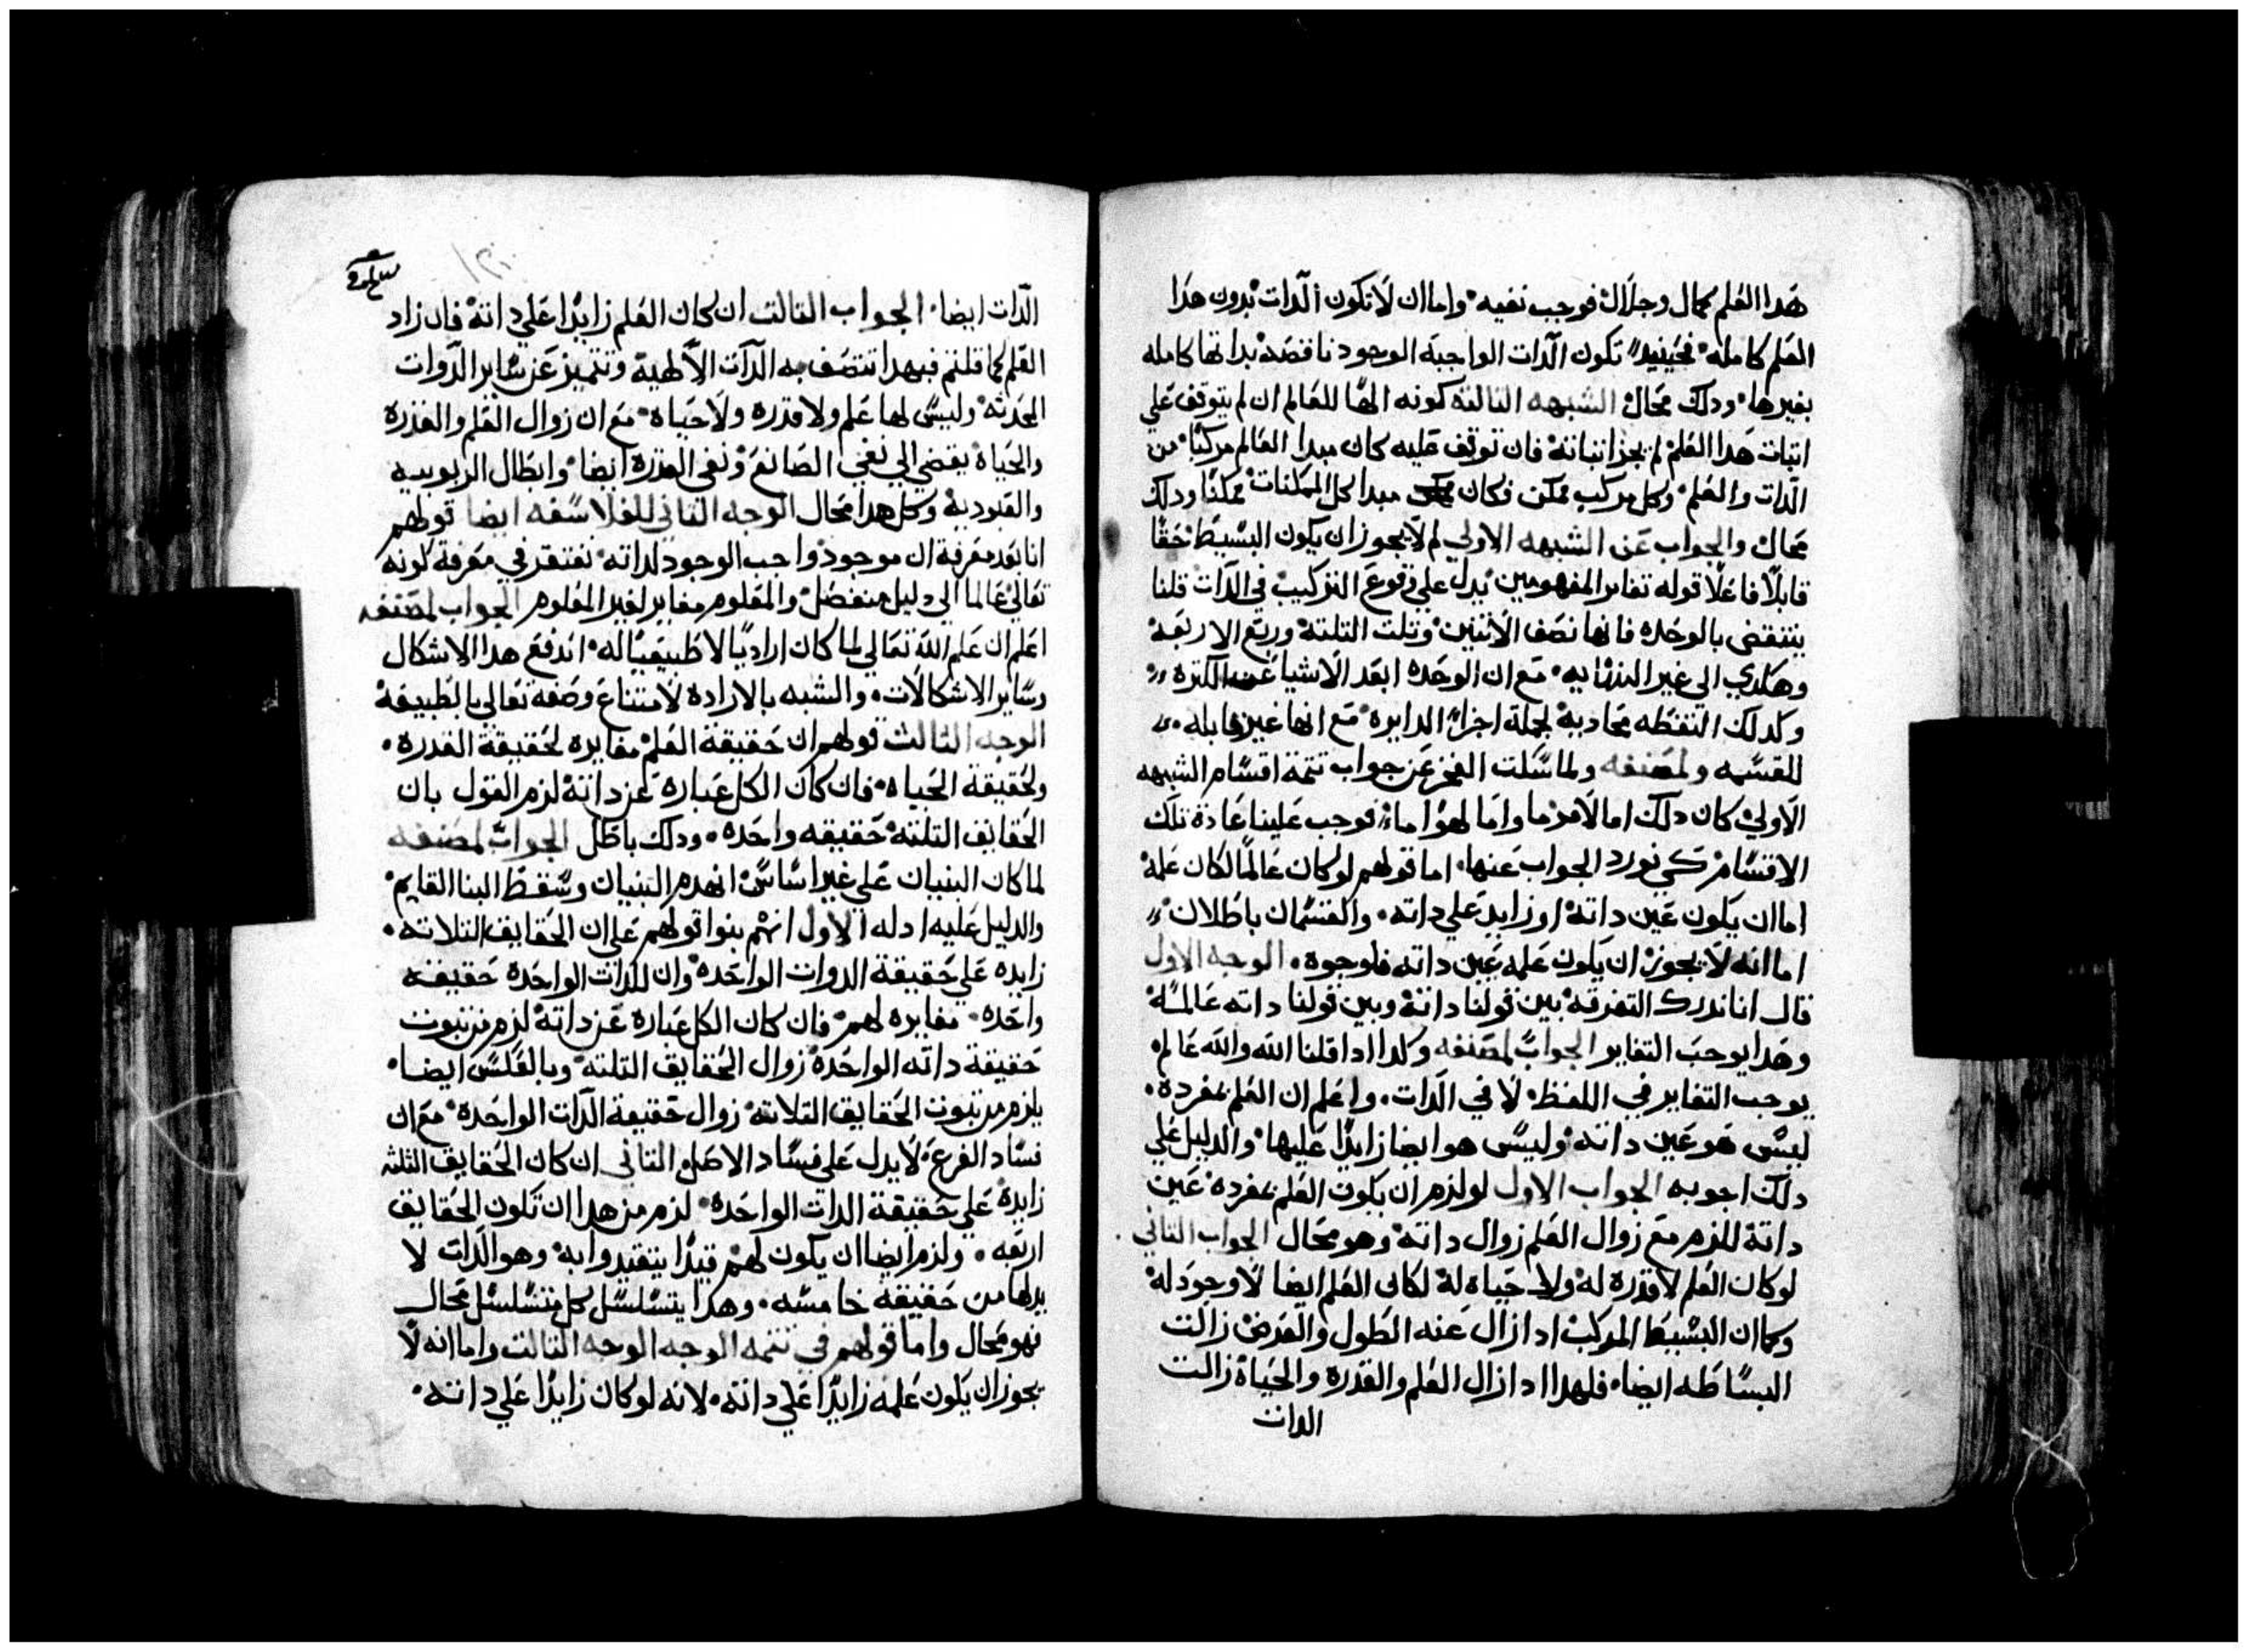 هدا العلم كمال وجلال فوجب نفيه واما ان لا تكون الدات بدون هدا
العلم كامله فحينيد تكون الدات الواجبة الوجود ناقصة بداتها كامله
بغيرها ودلك محال الشبهه التالتة كونه الها للعالم ان لم يتوقف علي
اتبات هدا العلم لم يجز اتباتة فان توقف عليه كان مبدا العالم مركبا من
الدات والعلم وكل مركب ممكن فكان مبدا كل الممكنات ممكنا ودلك
محال والجواب عن الشبهه الاولي لم لا يجوز ان يكون البسيط حقا
قابلا فاعلا قوله تغاير المفهومين يدل علي وقوع التركيب في الدات قلنا
ينتقض بالوحده فانها نصف الاتنين وتلت التلتة وربع الاربعة
وهكدي الي غير النهايه مع ان الوحده ابعد الاشيا عن الكترة
وكدلك النقطه محادية لجملة اجزا الدايره مع انها غير قابله
للقسمه ولمصنفه ولما سلت الفخر عن جواب تتمة اقسام الشبهه
الاولي كان دلك اما لامر ما واما لهوا ما فوجب علينا عادة تلك
الاقسام كي نورد الجواب عنها اما قولهم لو كان عالما لكان علمه
اما ان يكون عين داتة او زايد علي داته والقسمان باطلان
اما انه لا يجوز ان يكون علمه عين داته فلوجوه الوجه الاول
قال انا ندرك التفرقه بين قولنا داتة وبين قولنا داته عالمة
وهدا يوجب التغاير الجواب لمصنفه وكدا ادا قلنا الله والله عالم
يوجب التغاير في اللفظ لا في الدات واعلم ان العلم بمفرده
ليس هو عين داته وليس هو ايضا زايدا عليها والدليل علي
دلك اجوبه الجواب الاول لو لزم ان يكون العلم بمفرده عين
داتة للزم مع زوال العلم زوال داتة وهو محال الجواب التاني
لو كان العلم لا قدرة له ولا حياه له لكان العلم ايضا لا وجود له
وكما ان البسيط المركب ادا زال عنه الطول والعرض زالت
البساطه ايضا فلهدا ادا زال العلم والقدرة والحياة زالت
الدات
الدات ايضا الجواب التالت ان كان العلم زايدا علي داتة فان زاد
العلم كما قلتم فبهدا تتصف به الدات الالهية وتتميز عن ساير الدوات
المحدثه وليس لها علم ولا قدره ولا حياه مع ان زوال العلم والقدرة
والحياة يفضي الي نفي الصانع ونفي القدرة ايضا وابطال الربوبيه
والعبودية وكل هدا محال الوجه التاني للفلاسفه ايضا قولهم
انا بعد معرفة ان موجود واجب الوجود لداته نفتقر في معرفة كونه
تعالي عالما الي دليل منفصل والمعلوم مغاير لغير المعلوم الجواب لمصنفه
اعلم ان علم الله تعالي لما كان اراديا لا طبيعيا له اندفع هدا الاشكال
وساير الاشكالات والشبه بالارادة لامتناع وصفه تعالي بالطبيعة
الوجه التالت قولهم ان حقيقة العلم مغايره لحقيقة القدره
ولحقيقة الحياه فان كان الكل عباره عن داتة لزم القول بان
الحقايق التلتة حقيقه واحده ودلك باطل الجواب لمصنفه
لما كان البنيان علي غير اساس انهدم البنيان وسقط البنا القايم
والدليل عليه ادله الاول انهم بنوا قولهم علي ان الحقايق التلاته
زايده علي حقيقة الدوات الواحده وان للدات الواحدة حقيقه
واحده مغايره لهم فان كان الكل عبارة عن داتة لزم من تبوت
حقيقة داته الواحدة زوال الحقايق التلتة وبالعكس ايضا
يلزم من تبوت الحقايق التلاتة زوال حقيقة الدات الواحده مع ان
فساد الفرع لا يدل علي فساد الاصل التاني ان كان الحقايق الثلثه
زايدة علي حقيقة الدات الواحده لزم من هدا ان تكون الحقايق
اربعه ولزم ايضا ان يكون لهم قيدا يتقيدوا به وهو الدات لا
بد لها من حقيقه خامسه وهدا يتسلسل كل متسلسل محال
فهو محال واما قولهم في تتمه الوجه الوجه التالت واما انه لا
يجوز ان يكون علمه زايدا علي داتة لانه لو كان زايدا علي داته